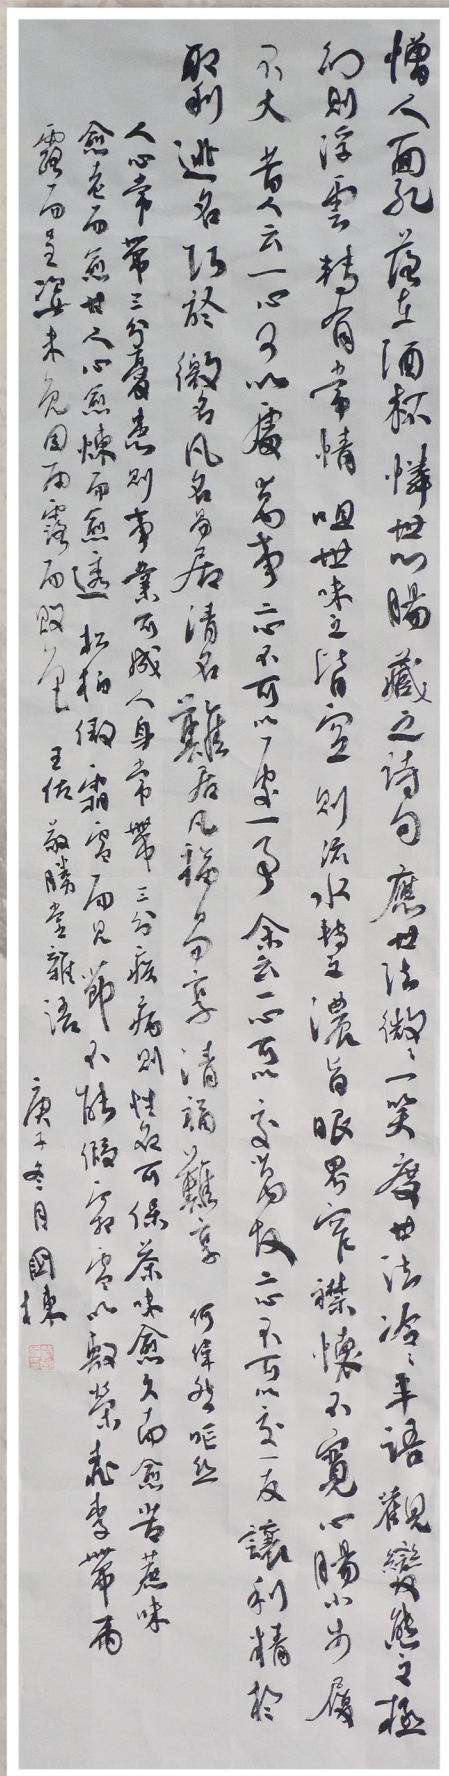 憎人面孔落在酒杯憐世心腸藏之詩句應世法微々一笑度世法冷々半語觀變態之極
幻則浮雲轉有常情咀世味之皆空則流水轉之濃旨眼界窄襟懷不寬心腸小步履
不大昔人云一心可以處萬事二心不可以處一事余云一心可以交萬友二心不可以交一友讓利精於
取利逃名巧於徼名凡名易居清名難居凡福易享清福難享何偉然嘔絲
人心常帶三分憂患則事業可成人身常帶三分疾病則性命可保茶味愈久而愈苦蔗味
愈老而愈甘人心愈煉而愈透松柏傲霜雪而見節不能假霜雪以敷榮桃李帶雨
露而呈姿未免因雨露而毀質王佐敬勝堂雜語庚子冬月國棟